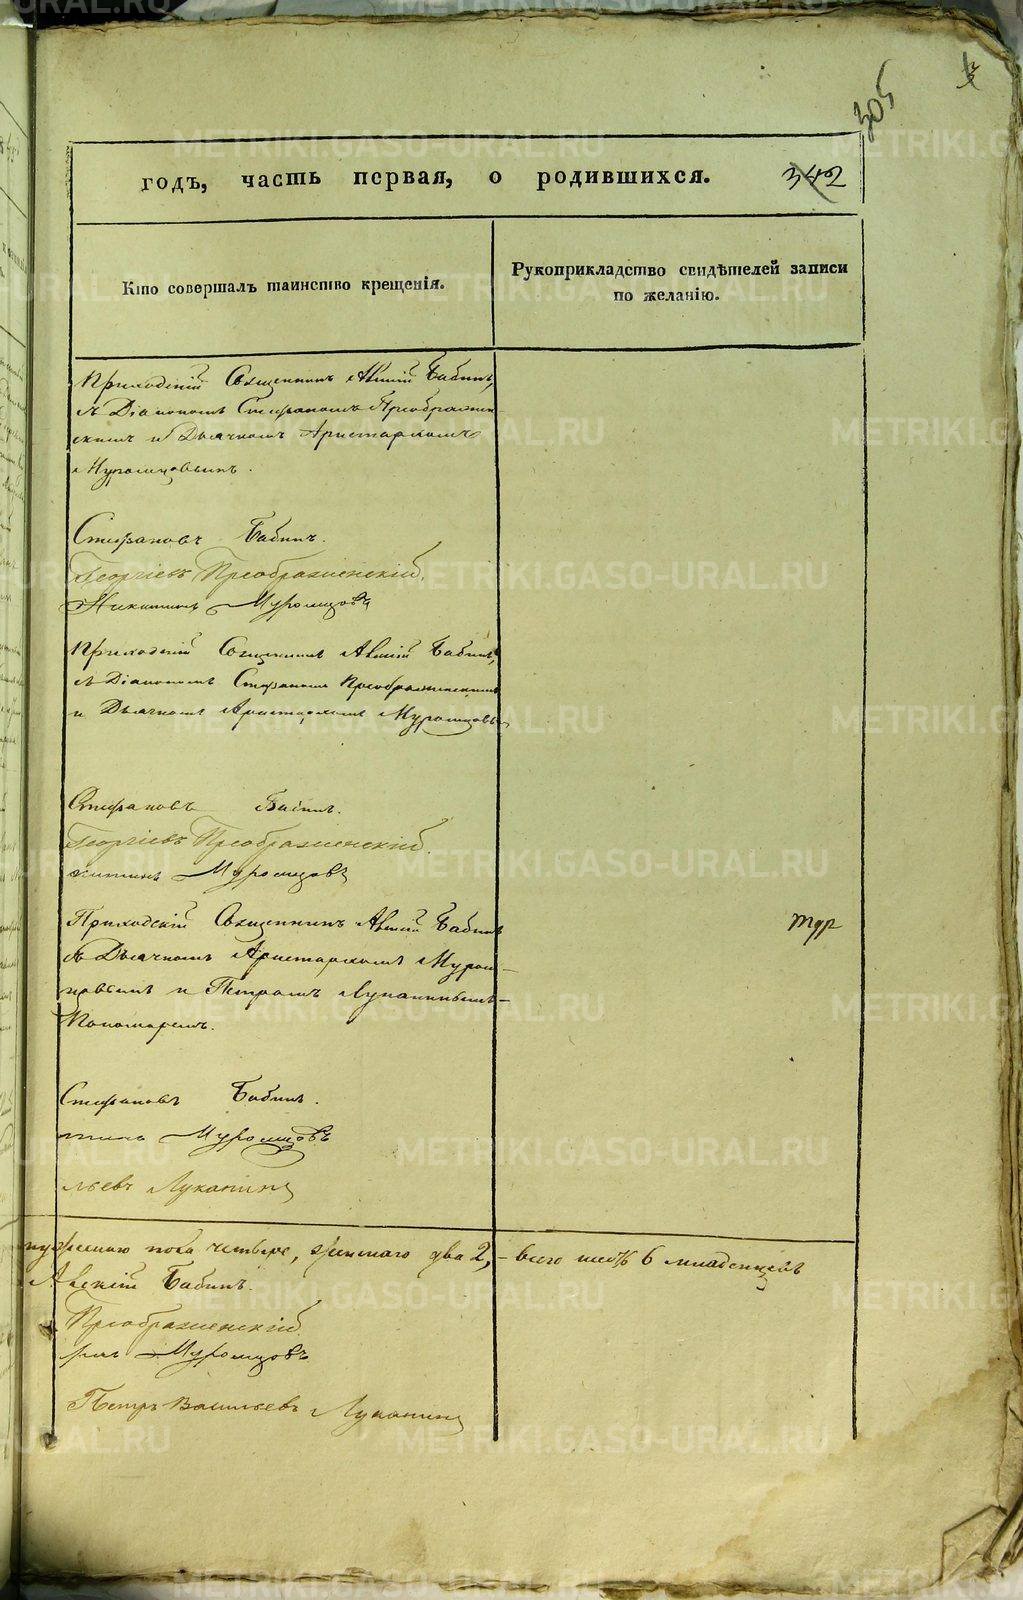 305
годъ, часть первая, о родившихся. 342
Кто совершалъ таинство крещенія.
Рукоприкладство свидѣтелей записи
по желанію.
Приходскій Священникъ Алексій Бабинъ,
съ Діакономъ Стефаномъ Преображен-
скимъ и Дьячкомъ Аристархомъ
Муромцовымъ.
Стефановъ Бабинъ.
Георгіевъ Преображенскій.
Никитинъ Муромцовъ
Приходскій Священникъ Алексій Бабинъ,
съ Діакономъ Стефаномъ Преображенскимъ
и Дьячкомъ Аристархомъ Муромцовы
Стефановъ Бабинъ.
Георгіевъ Преображенскій.
китинъ Муромцовъ
Приходскій Священникъ Алексій Бабинъ
съ Дьячкомъ Аристархомъ Муром-
цовымъ и Петромъ Луканинымъ-
Пономаремъ.
Стефановъ Бабинъ.
тинъ Муромцовъ
льевъ Луканинъ
мужескаго пола четыре, женскаго два 2, - всего шесть 6 младенцевъ
Алексій Бабинъ.
Преображенскій.
Муромцовъ
Петръ Васильевъ Луканинъ
METRIKI.GASO-URAL.RU